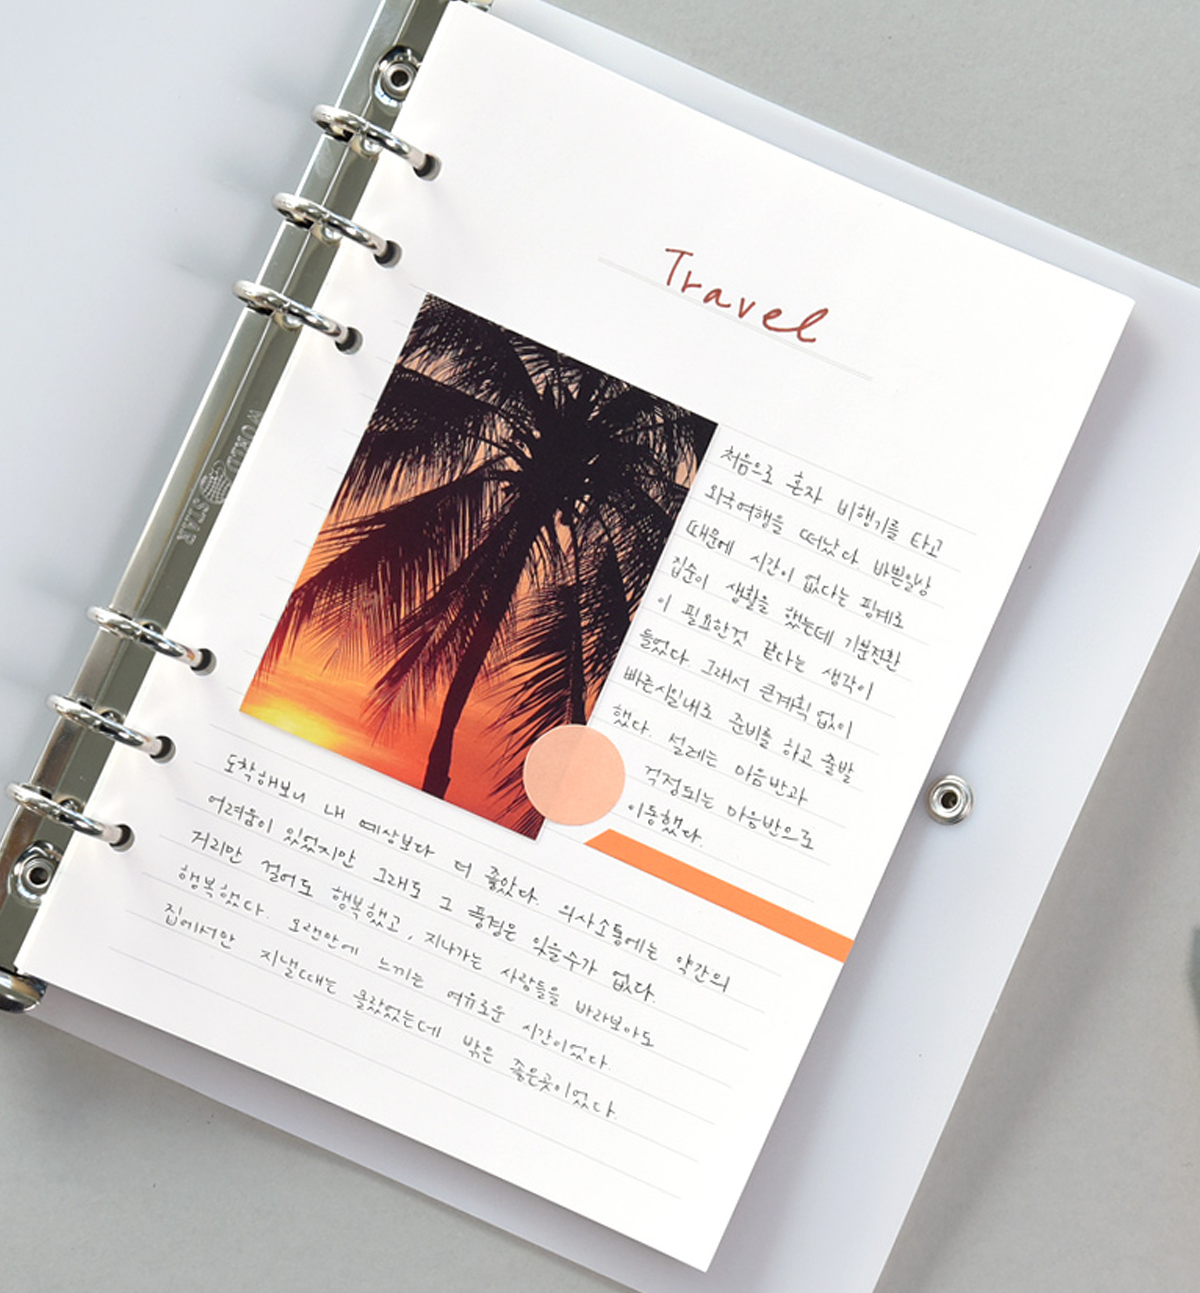 Travel
처음으로 혼자 비행기를 타고
외국여행을 떠났다 바쁜일상
때문에 시간이 없다는 핑계로
집순이 생활을 했는데 기분전환
이 필요한것 같다는 생각이
들었다. 그래서 큰계획 없이
빠른시일내로 준비를 하고 출발
했다. 설레는 마음반과
걱정되는 마음반으로
이동했다.
도착해보니 내 예상보다 더 좋았다. 의사소통에는 약간의
어려움이 있었지만 그래도 그 풍경은 잊을수가 없다.
거리만 걸어도 행복했고, 지나가는 사람들을 바라보아도
행복했다. 오랜만에 느끼는 여유로운 시간이었다.
집에서만 지낼때는 몰랐었는데 밖은 좋은곳이었다.
WORLD STAR